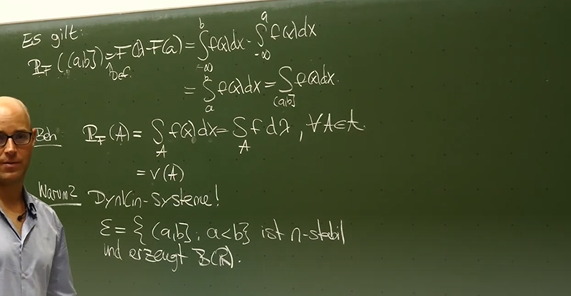 Es gilt:
P_F((a,b]) =_Def. F(b)-F(a) = ∫_{-∞}^{b} f(x)dx - ∫_{-∞}^{a} f(x)dx
= ∫_{a}^{b} f(x)dx = ∫_{(a,b]} f(x)dx.
Beh P_F(A) = ∫_A f(x)dx = ∫_A f dλ, ∀A∈A.
= ν(A)
Warum? Dynkin-Systeme!
ℰ = { (a,b] ; a<b} ist ∩-stabil
und erzeugt B(ℝ).